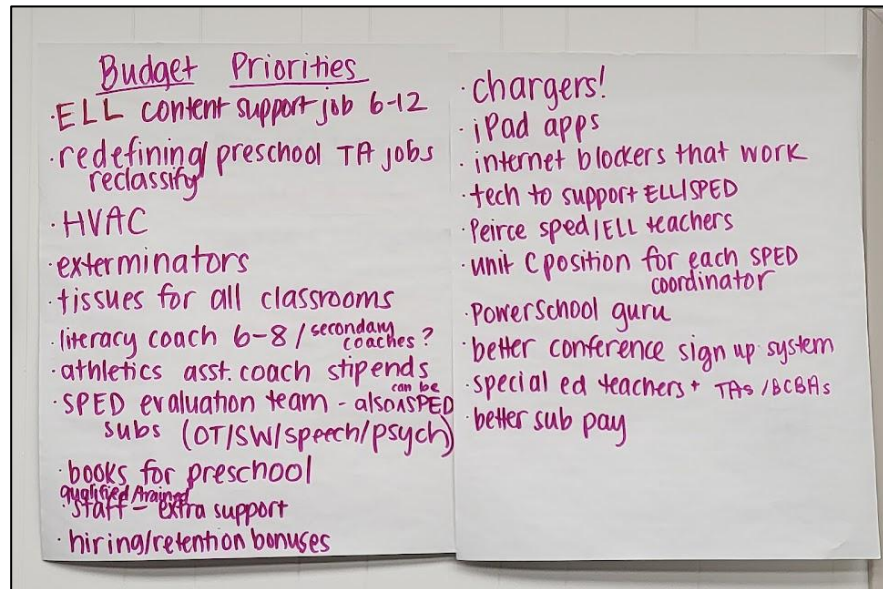 Budget Priorities
·ELL content support job 6-12
·redefining/ preschool TA jobs
reclassify
·HVAC
·exterminators
·tissues for all classrooms
·literacy coach 6-8/secondary coaches?
·athletics asst. coach stipends
·SPED evaluation team - also can be SPED
subs (OT/SW/speech/psych)
·books for preschool
qualified/trained
·staff - extra support
·hiring/retention bonuses
·chargers!
·iPad apps
·internet blockers that work
·tech to support ELL/SPED
·Peirce sped/ELL teachers
·unit C position for each SPED
coordinator
·PowerSchool guru
·better conference sign up system
·special ed teachers + TAs/BCBAs
·better sub pay